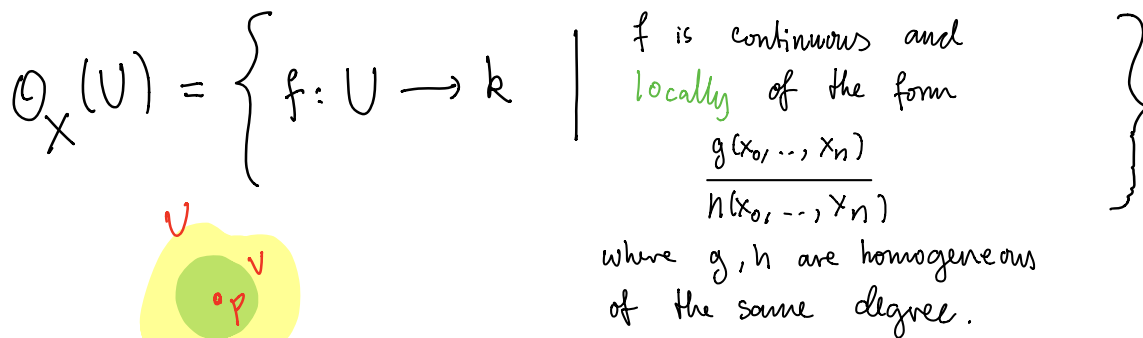 O_X(U) = { f: U → k | f is continuous and
locally of the form
g(x_0, .., x_n)
h(x_0, .., x_n) }
where g, h are homogeneous
of the same degree.
U
V
p